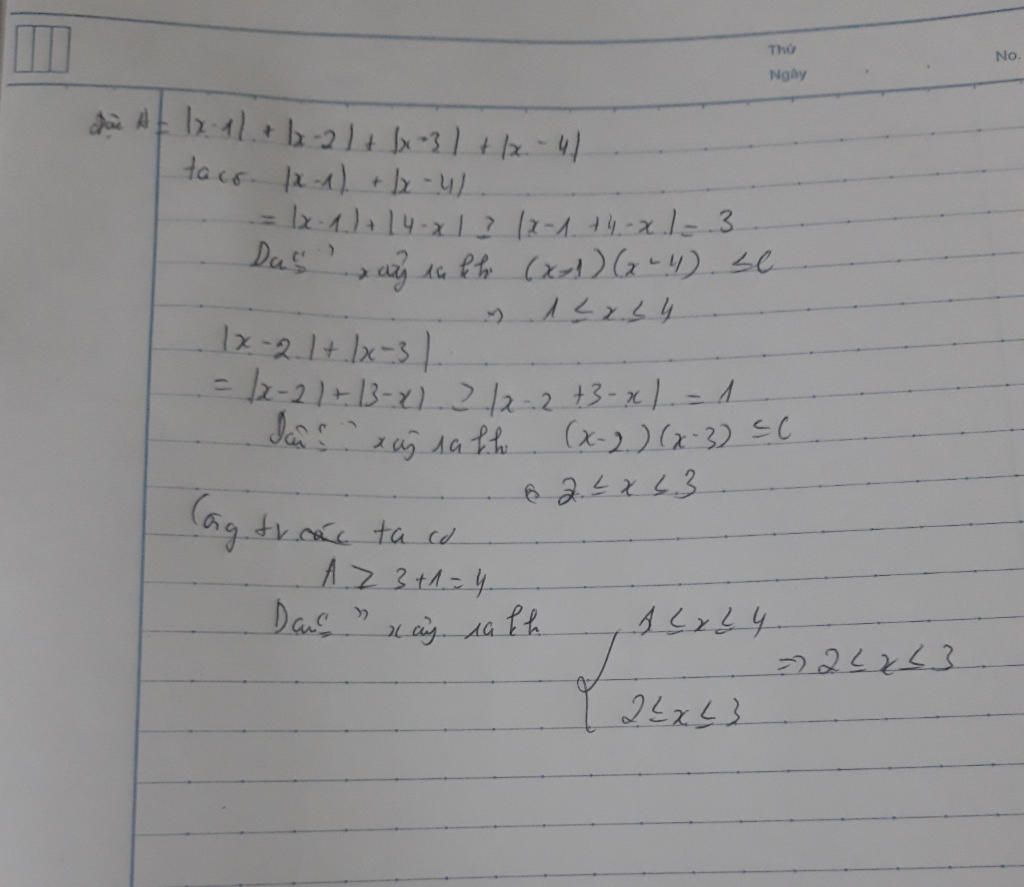 Thứ
Ngày
No.
A = |x-1| + |x-2| + |x-3| + |x-4|
ta có |x-1| + |x-4|
= |x-1| + |4-x| ≥ |x-1+4-x| = 3
Dấu "=" xảy ra kh (x-1)(x-4) ≤ 0
=> 1 ≤ x ≤ 4
|x-2| + |x-3|
= |x-2| + |3-x| ≥ |x-2+3-x| = 1
Dấu "=" xảy ra kh (x-2)(x-3) ≤ 0
2 ≤ x ≤ 3
Cộng ta có
A ≥ 3+1 = 4
Dấu "=" xảy ra kh { 1 ≤ x ≤ 4
=> 2 ≤ x ≤ 3
2 ≤ x ≤ 3